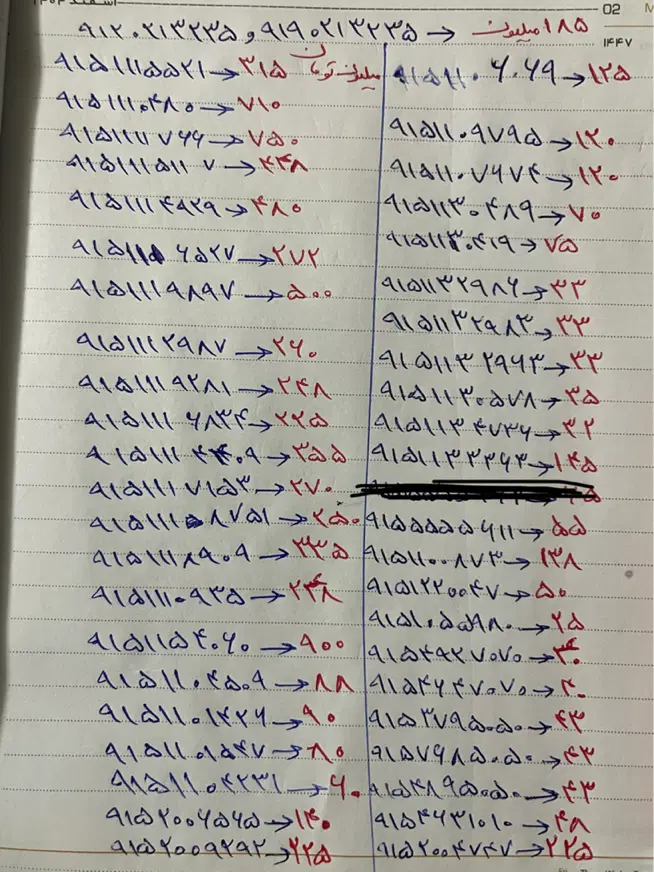 02
۱۴۴۷
۹۱۲۰۲۱۳۲۳۵ و ۹۱۹۰۲۱۳۲۳۵ → ۱۸۵ میلیون
۹۱۵۱۱۱۵۵۲۱ → ۳۱۵ میلیون تومان
۹۱۵۱۱۱۰۴۸۰ → ۷۱۰
۹۱۵۱۱۱۷۶۶ → ۷۵۰
۹۱۵۱۱۱۵۱۱۷ → ۴۴۸
۹۱۵۱۱۱۴۹۲۹ → ۴۸۰
۹۱۵۱۱۱۶۵۲۷ → ۲۷۲
۹۱۵۱۱۱۹۸۹۷ → ۵۰۰
۹۱۵۱۱۱۲۹۸۷ → ۲۶۰
۹۱۵۱۱۱۹۲۸۱ → ۲۴۸
۹۱۵۱۱۱۶۸۳۴ → ۲۲۵
۹۱۵۱۱۱۴۴۰۹ → ۳۵۵
۹۱۵۱۱۱۷۱۵۳ → ۲۷۰
۹۱۵۱۱۱۸۷۵۱ → ۲۵۰
۹۱۵۱۱۱۸۹۰۹ → ۳۳۵
۹۱۵۱۱۱۰۹۳۵ → ۲۴۸
۹۱۵۱۱۵۴۰۶۰ → ۹۰۰
۹۱۵۱۱۰۴۵۰۹ → ۸۸
۹۱۵۱۱۰۱۴۲۶ → ۹۰
۹۱۵۱۱۰۱۵۴۷ → ۸۰
۹۱۵۱۱۰۴۲۳۱ → ۶۰
۹۱۵۲۰۰۶۵۶۵ → ۱۴۰
۹۱۵۲۰۰۹۲۹۲ → ۲۲۵
۹۱۵۱۱۰۶۰۶۹ → ۱۲۵
۹۱۵۱۱۰۹۷۹۵ → ۱۲۰
۹۱۵۱۱۰۷۶۷۴ → ۱۲۰
۹۱۵۱۱۳۰۴۸۹ → ۷۰
۹۱۵۱۱۳۰۴۱۹ → ۷۵
۹۱۵۱۱۳۲۹۸۶ → ۳۳
۹۱۵۱۱۳۲۹۸۳ → ۳۳
۹۱۵۱۱۳۲۹۶۳ → ۳۳
۹۱۵۱۱۳۰۵۷۸ → ۳۵
۹۱۵۱۱۳۴۷۳۶ → ۳۲
۹۱۵۱۱۳۳۳۶۳ → ۱۴۵
۹۱۵۵۵۵۵۶۱۱ → ۵۵
۹۱۵۱۱۰۰۸۷۳ → ۱۳۸
۹۱۵۱۲۲۰۰۴۷ → ۵۰
۹۱۵۱۰۵۵۹۸۰ → ۲۵
۹۱۵۴۹۲۷۰۷۰ → ۴۰
۹۱۵۴۶۴۷۰۷۰ → ۴۰
۹۱۵۳۷۹۵۰۵۰ → ۴۳
۹۱۵۷۶۸۵۰۵۰ → ۴۳
۹۱۵۴۸۹۵۰۵۰ → ۴۳
۹۱۵۴۶۳۱۰۱۰ → ۴۸
۹۱۵۲۰۰۴۷۴۷ → ۲۲۵